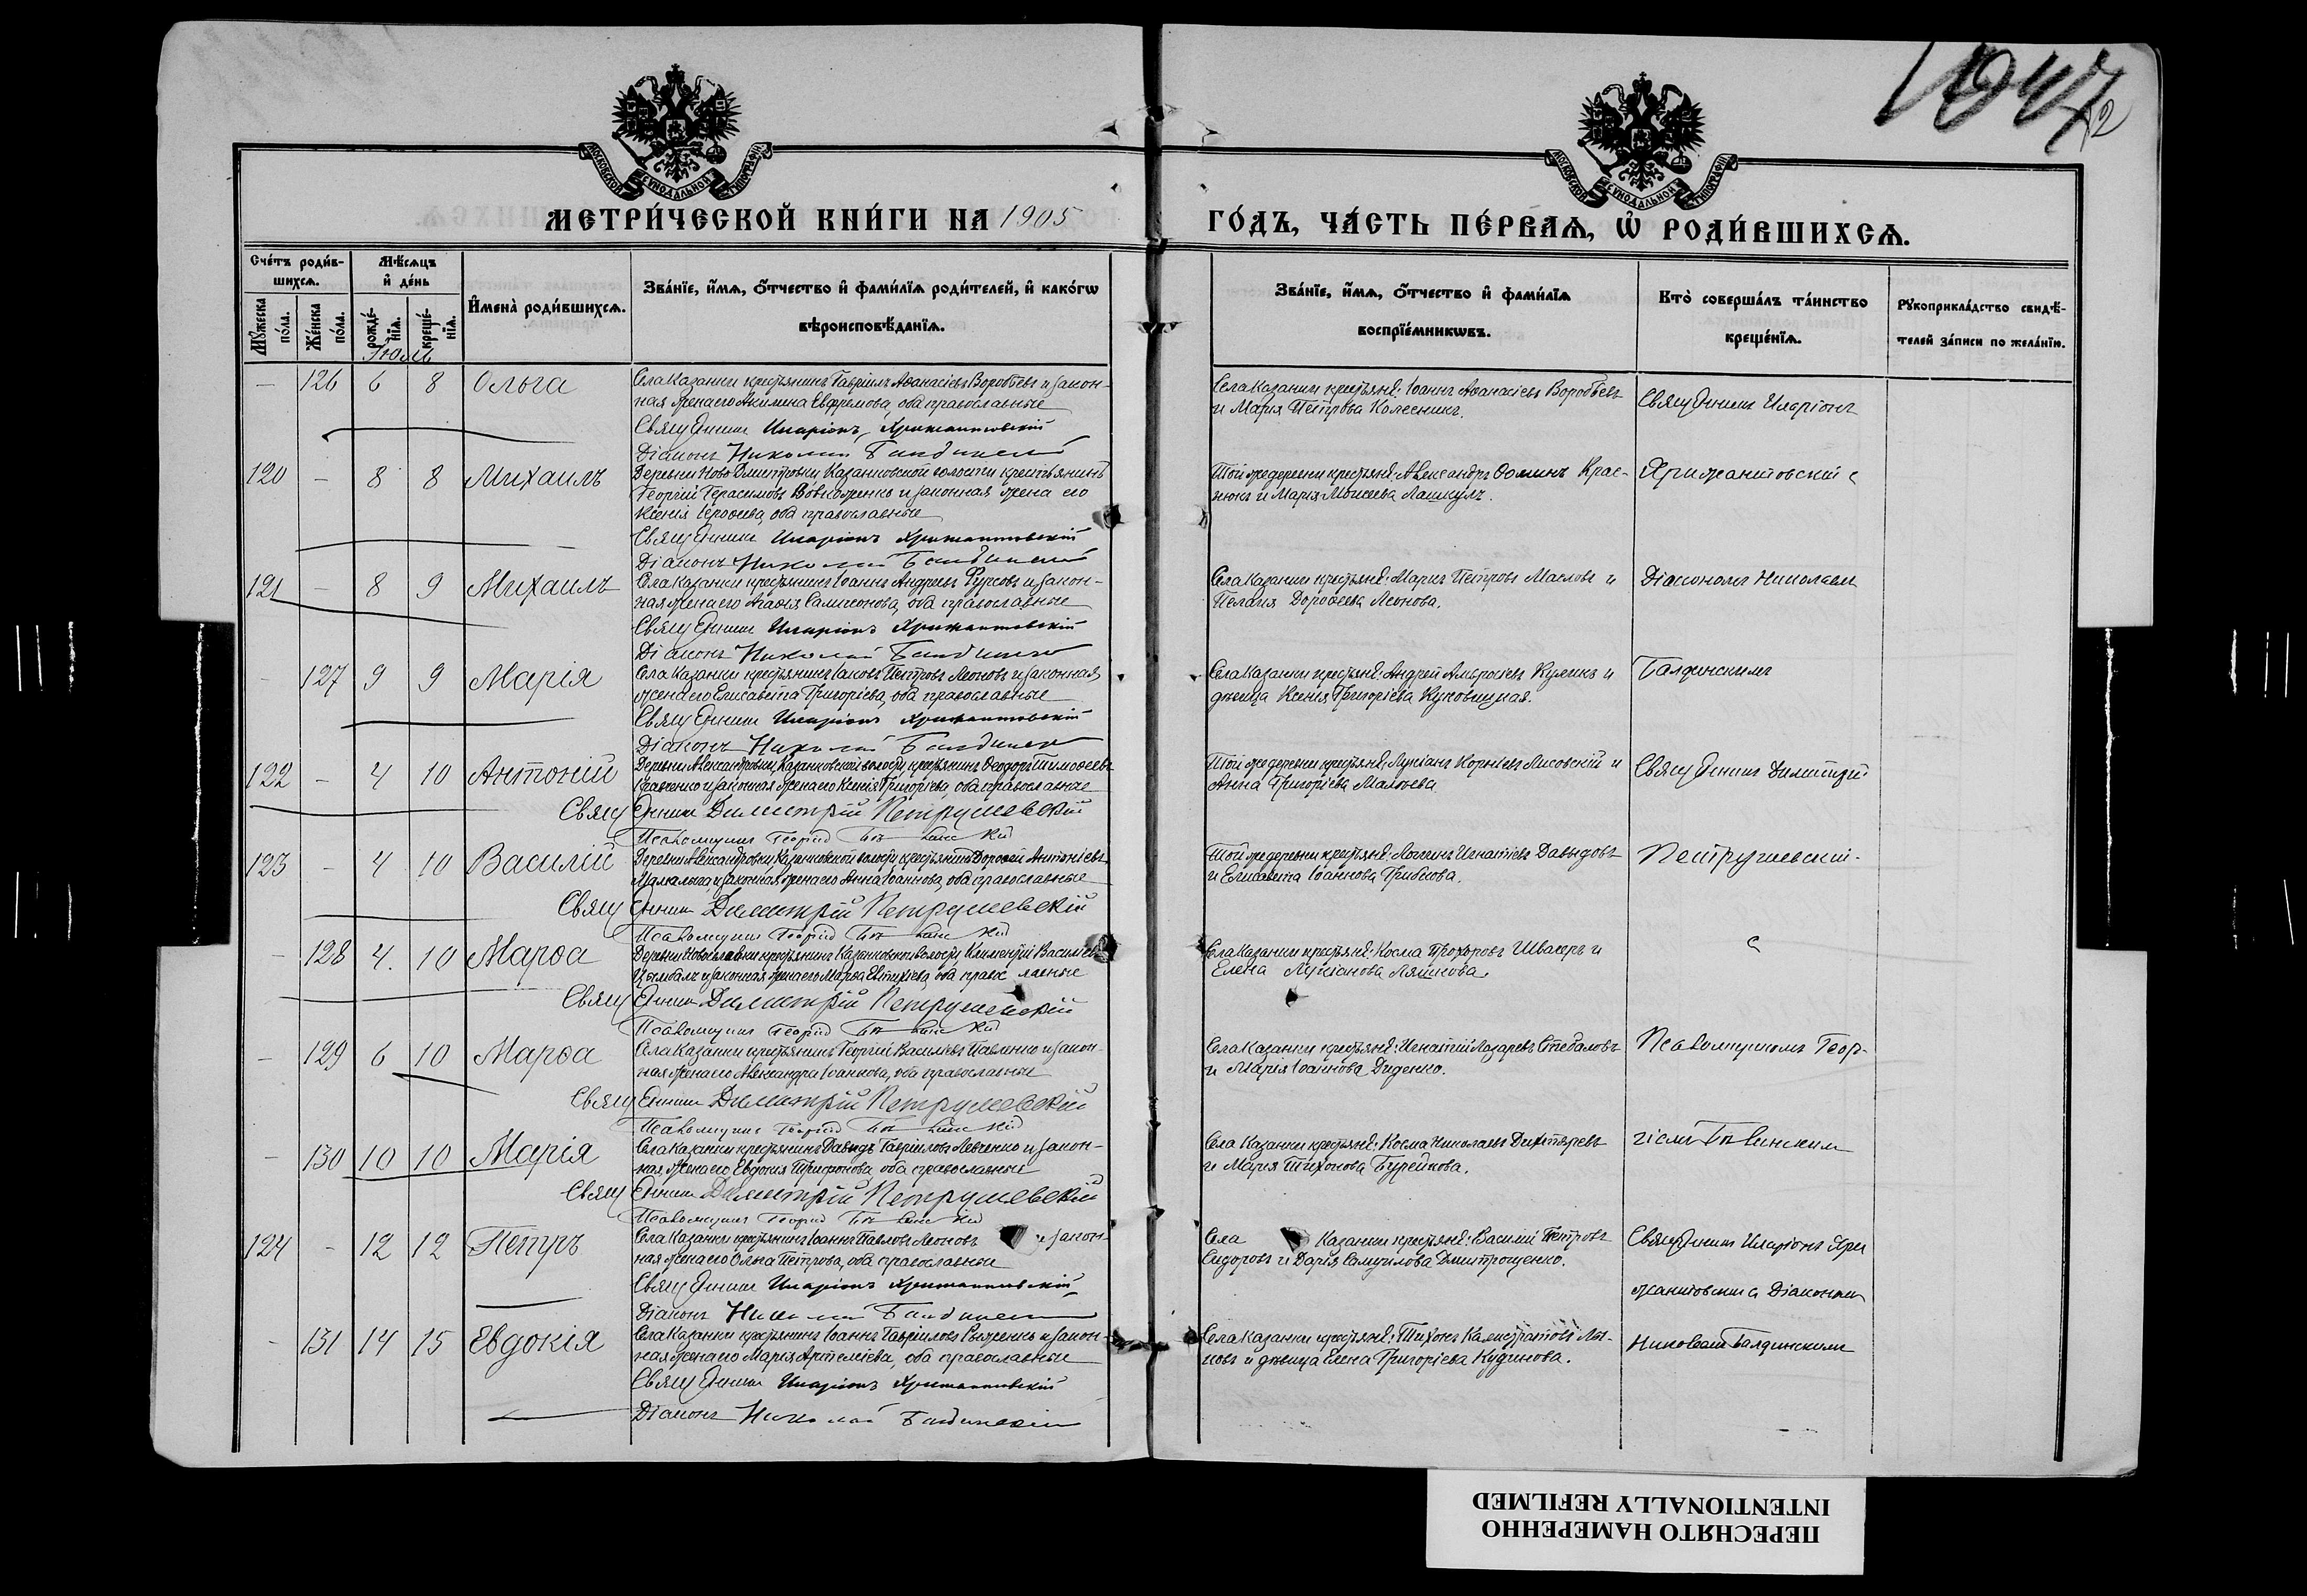 1947
12
МОСКОВСКОЙ СѴНОДАЛЬНОЙ ТИПОГРАФІИ
МОСКОВСКОЙ СѴНОДАЛЬНОЙ ТИПОГРАФІИ
МЕТРИ́ЧЕСКОЙ КНИ́ГИ НА 1905
ГО́ДЪ, ЧА́СТЬ ПЕ́РВАѦ, Ѽ РОДИ́ВШИХСѦ.
Сче́тъ роди́в-
шихсѧ.
Мꙋ́жеска по́ла.
Же́нска по́ла.
Мѣ́сѧцъ
и҆ де́нь
рожде́-нїѧ.
креще́-нїѧ.
Іюль
И҆мена̀ роди́вшихсѧ.
Зва́нїе, и҆́мѧ, ѻ҆́тчество и҆ фами́лїѧ роди́телей, и҆ како́гѡ
вѣроисповѣ́данїѧ.
Зва́нїе, и҆́мѧ, ѻ҆́тчество и҆ фами́лїѧ
воспрїе́мникѡвъ.
Кто̀ соверша́лъ та́инство
креще́нїѧ.
Рꙋкоприкла́дство свидѣ́-
телей за́писи по жела́нїю.
— 126 6 8 Ольга
Села Казанки крестьянинъ Гавріилъ Аѳанасіевъ Воробьевъ и закон-
ная жена его Акилина Евфремова, оба православные
Священникъ Иларіонъ Хрижантовскій
Діаконъ Николай
Села Казанки крестьяне: Іоаннъ Аѳанасіевъ Воробьевъ
и Марія Петрова Колесникъ.
Священникъ Иларіонъ
120 — 8 8 Михаилъ
Деревни Ново-Дмитровки Казанковской волости крестьянинъ
Георгій Герасимовъ Вовкоженко и законная жена его
Ксенія Іероѳеева, оба православные
Священникъ Иларіонъ Хрижантовскій
Діаконъ Николай
Той же деревни крестьяне: Александръ Ѳоминъ Крас-
нюкъ и Марія Моисеева Лашкулъ.
Хрижантовскій с
121 — 8 9 Михаилъ
Села Казанки крестьянинъ Іоаннъ Андреевъ Фурсовъ и закон-
ная жена его Агаѳія Сампсонова, оба православные
Священникъ Иларіонъ Хрижантовскій
Діаконъ Николай
Села Казанки крестьяне: Маркъ Петровъ Масловъ и
Пелагія Дороѳеева Леонова.
Діакономъ Николаемъ
— 127 9 9 Марія
Села Казанки крестьянинъ Іаковъ Петровъ Леоновъ и законная
жена его Елисавета Григоріева, оба православные
Священникъ Иларіонъ Хрижантовскій
Діаконъ Николай
Села Казанки крестьяне: Андрей Амвросіевъ Куликъ и
дѣвица Ксенія Григоріева Куковицкая.
122 — 4 10 Антоній
Деревни Александровки, Казанковской волости крестьянинъ Ѳеодоръ Тимоѳеевъ
Кравченко и законная жена его Ксенія Григоріева, оба православные
Священникъ Димитрій Петрушевскій
Псаломщикъ Георгій
Той же деревни крестьяне: Лукіанъ Корніевъ Лисовскій и
Анна Григоріева
Священникъ Димитрій
123 — 4 10 Василій
Деревни Александровки, Казанковской волости крестьянинъ Дороѳей Антоніевъ
и законная жена его Анна Іоаннова, оба православные
Священникъ Димитрій Петрушевскій
Псаломщикъ Георгій
Той же деревни крестьяне: Логгинъ Игнатіевъ Давыдовъ
и Елисавета Іоаннова Грибкова.
Петрушевскій
— 128 4. 10 Марѳа
Казанковской волости Климентій Васильевъ
Цымбалъ и законная жена его Марѳа Евтихіева, оба православные
Священникъ Димитрій Петрушевскій
Псаломщикъ Георгій
Села Казанки крестьяне: Косма Прохоровъ Швагеръ и
Елена Лукіанова Ляшкова.
с
— 129 6 10 Марѳа
Села Казанки крестьянинъ Георгій Васильевъ Павленко и закон-
ная жена его Александра Іоаннова, оба православные
Священникъ Димитрій Петрушевскій
Псаломщикъ Георгій
Села Казанки крестьяне: Игнатій Лазаревъ
и Марія Іоаннова Диденко.
Псаломщикомъ Геор-
— 130 10 10 Марія
Села Казанки крестьянинъ Давидъ Гавріиловъ Левченко и закон-
ная жена его Евдокія Трифонова, оба православные
Священникъ Димитрій Петрушевскій
Псаломщикъ Георгій
Села Казанки крестьяне: Косма Николаевъ Дихтяревъ
и Марія Тихонова Бурейкова.
гіемъ
124 — 12 12 Петръ
Села Казанки крестьянинъ Іоаннъ Павловъ Леоновъ и закон-
ная жена его Ольга Петрова, оба православные
Священникъ Иларіонъ Хрижантовскій
Діаконъ Николай
Села Казанки крестьяне: Василій Петровъ
Сидоровъ и Дарія Самуилова Дмитрощенко.
Священникъ Иларіонъ Хри
жантовскій съ Діакономъ
— 131 14 15 Евдокія
Села Казанки крестьянинъ Іоаннъ Гавріиловъ и закон-
ная жена его Марія Артеміева, оба православные
Священникъ Иларіонъ Хрижантовскій
Діаконъ Николай
Села Казанки крестьяне: Тихонъ Калистратовъ
и дѣвица Елена Григоріева Кудинова.
Николаемъ
ПЕРЕСНЯТО НАМЕРЕННО
INTENTIONALLY REFILMED